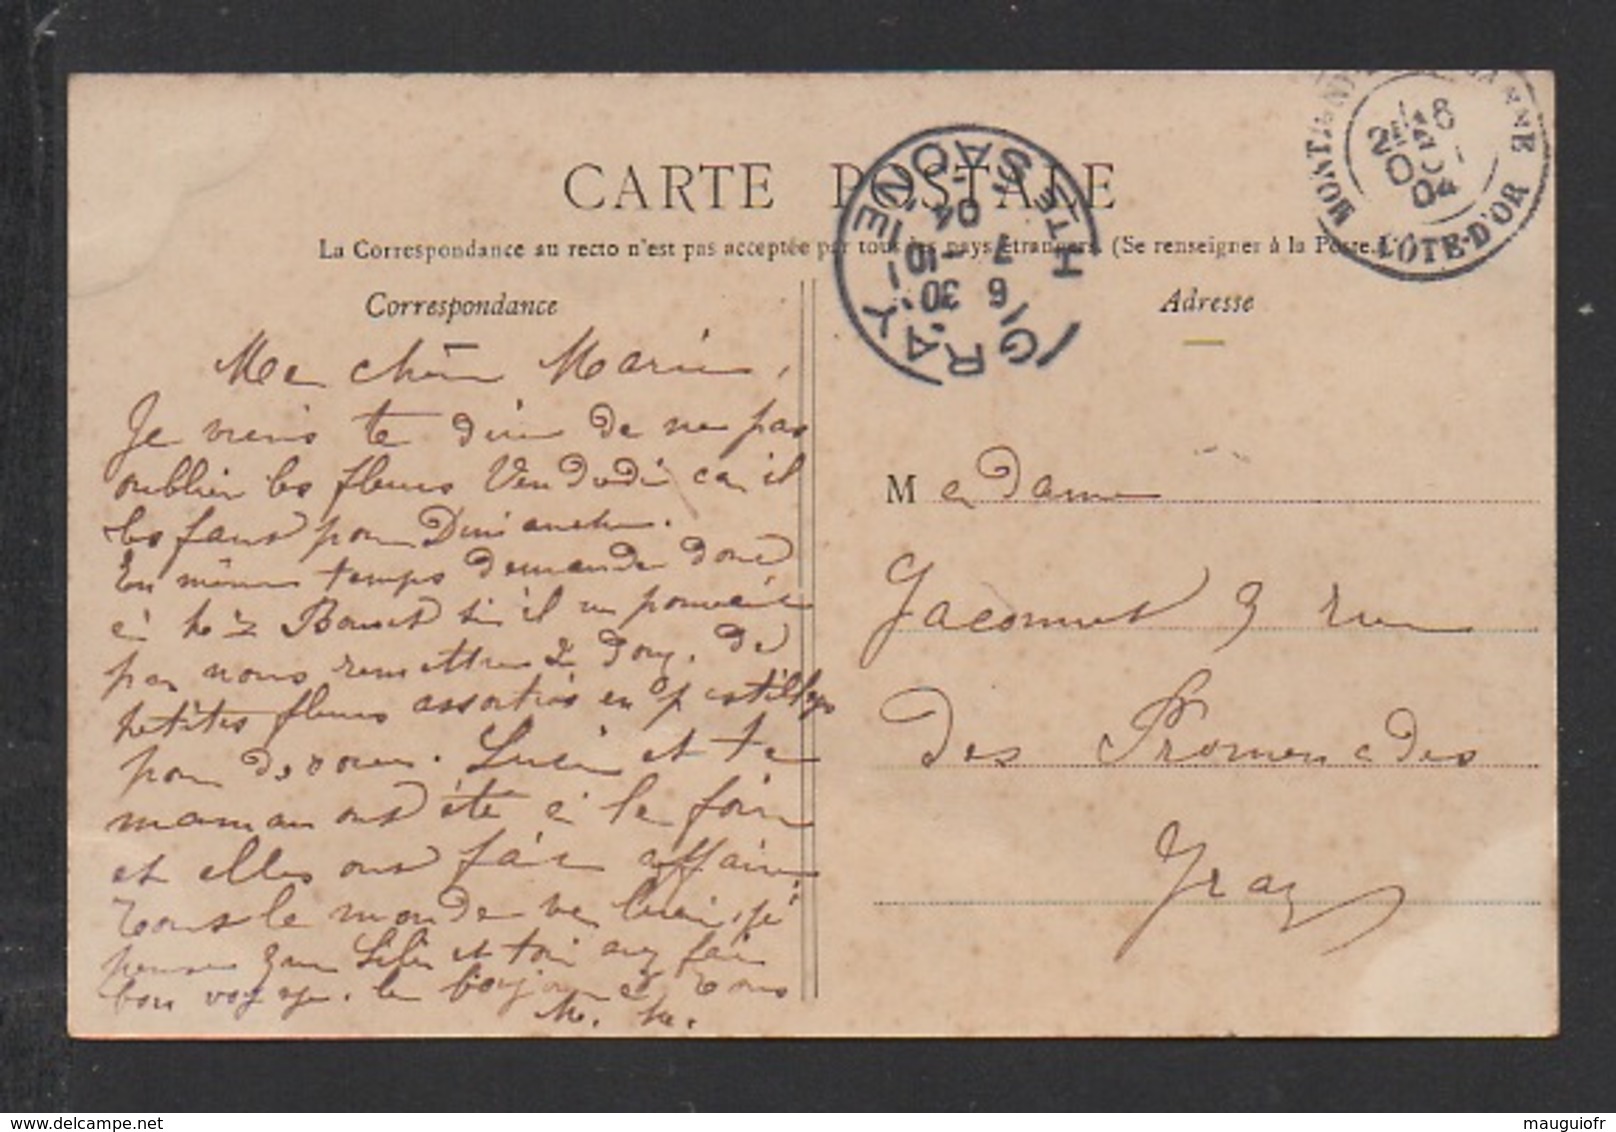 CARTE POSTALE
La Correspondance au recto n'est pas acceptée par tous les pays étrangers. (Se renseigner à la Poste.)
Correspondance
Adresse
GRAY
HTE SAÔNE
6 30
7 -10
04
CÔTE-D'OR
04
Ma chère Marie,
Je viens te dire de ne pas
oublier les fleurs Vendredi car il
les faut pour Dimanche.
En même temps demande donc
à chéz si il ne pourrait
pas nous remettre 2 douz. de
petites fleurs assorties en pastillage
pour décorer. Lucie et ta
maman ont été à la foire
et elles ont fait affaire,
tous le monde va bien, je
pense que Lili et toi avez fait
bon voyage. le bonjour à tous
M. M.
Madame
Jacomet 9 rue
Des Promenades
Gray
maugiofr